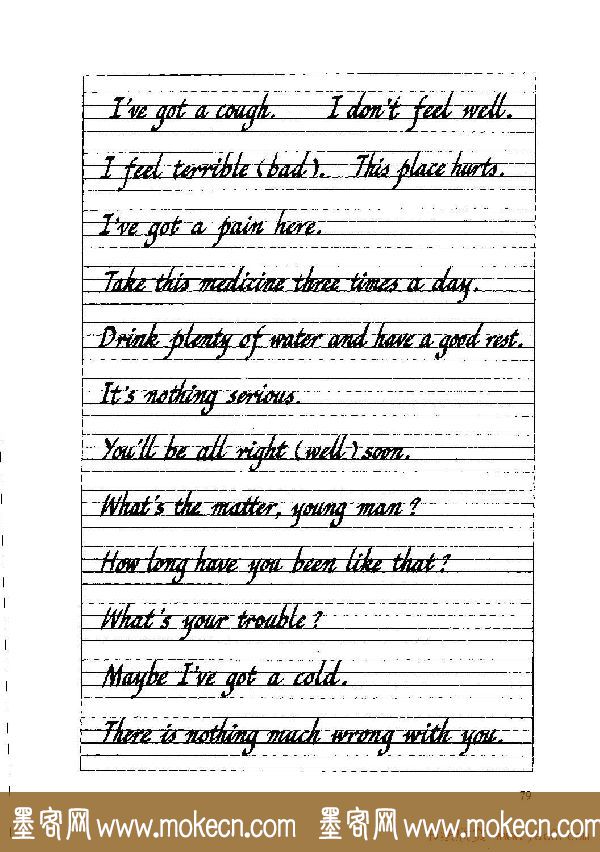 I've got a cough. I don't feel well.
I feel terrible (bad). This place hurts.
I've got a pain here.
Take this medicine three times a day.
Drink plenty of water and have a good rest.
It's nothing serious.
You'll be all right (well) soon.
What's the matter, young man?
How long have you been like that?
What's your trouble?
Maybe I've got a cold.
There is nothing much wrong with you.
79
墨客网 www.mokecn.com 墨客网 www.mokecn.com